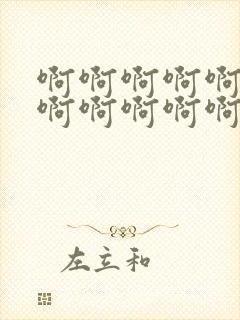 啊啊啊啊啊
啊啊啊啊啊
左立和